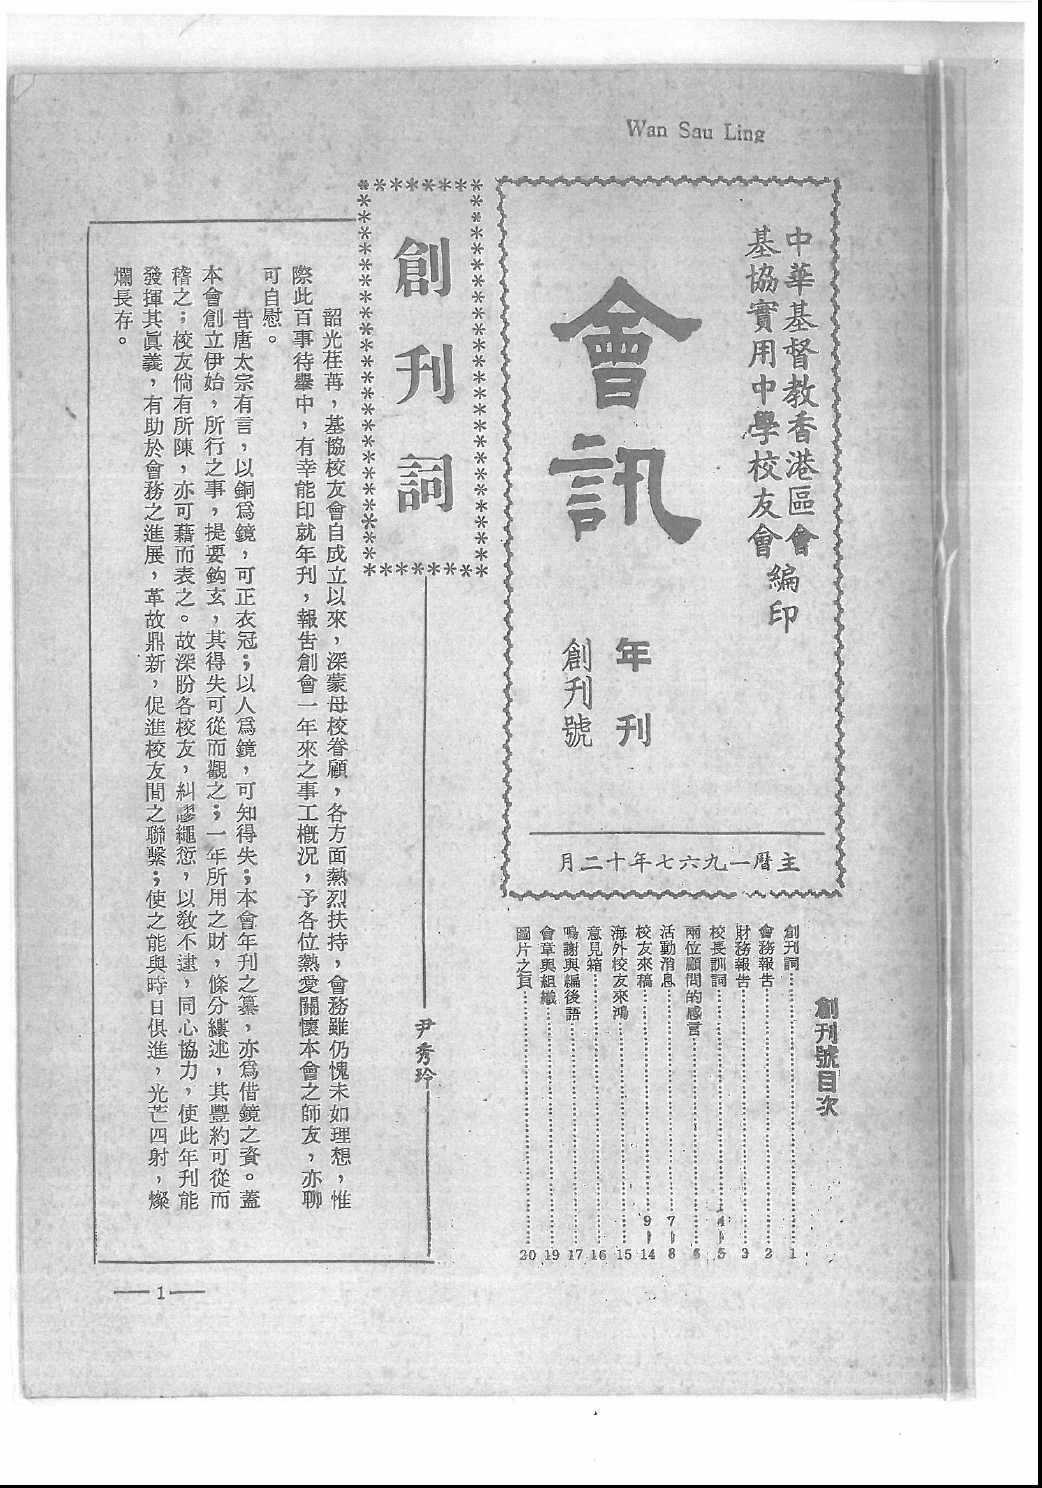 Wan Sau Ling
中華基督教香港區會
基協實用中學校友會
編印
會訊
年刊
創刊號
主曆一九六七年十二月
創刊號目次
創刊詞 1
會務報告 2
財務報告 3
校長訓詞 4－5
兩位顧問的感言 6
活動消息 7－8
校友來稿 9－14
海外校友來鴻 15
意見箱 16
鳴謝與編後語 17
會章與組織 19
圖片之頁 20
創刊詞
尹秀玲
韶光荏苒，基協校友會自成立以來，深蒙母校眷顧，各方面熱烈扶持，會務雖仍愧未如理想，惟
際此百事待舉中，有幸能印就年刊，報告創會一年來之事工槪況，予各位熱愛關懷本會之師友，亦聊
可自慰。
昔唐太宗有言，以銅爲鏡，可正衣冠；以人爲鏡，可知得失；本會年刊之纂，亦爲借鏡之資。蓋
本會創立伊始，所行之事，提要鈎玄，其得失可從而觀之；一年所用之財，條分縷述，其豐約可從而
稽之；校友倘有所陳，亦可藉而表之。故深盼各校友，糾謬繩愆，以敎不逮，同心協力，使此年刊能
發揮其眞義，有助於會務之進展，革故鼎新，促進校友間之聯繫；使之能與時日俱進，光芒四射，燦
爛長存。
— 1 —